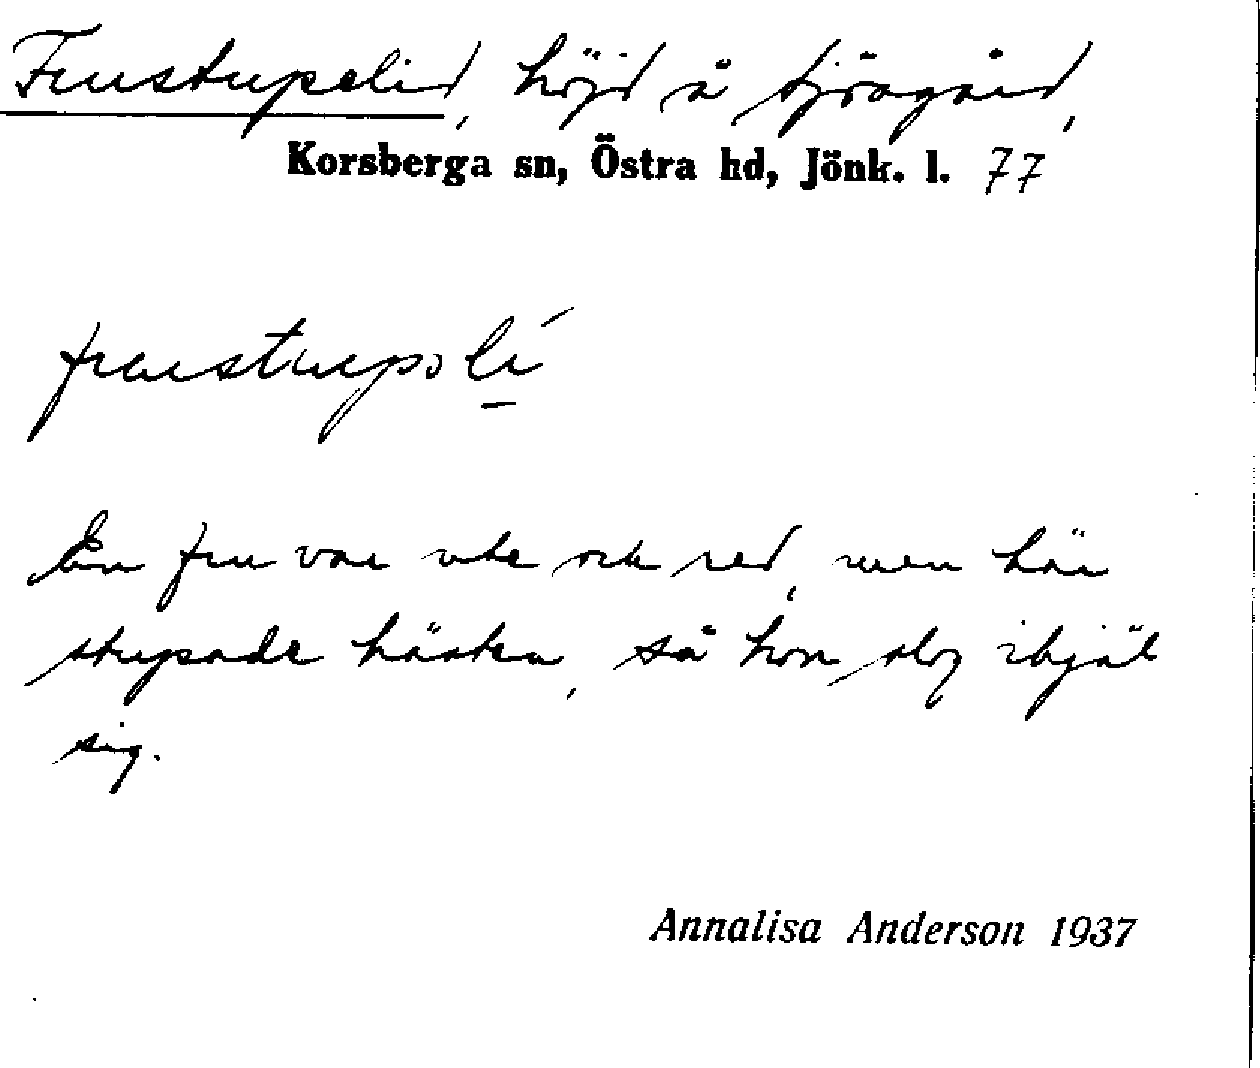 Frustupelid, höjd å Sjöagård,
Korsberga sn, Östra hd, Jönk. l. 77
frustupəli´
En fru var ute och red, men här
stupade hästen, så hon slog ihjäl
sig.
Annalisa Anderson 1937